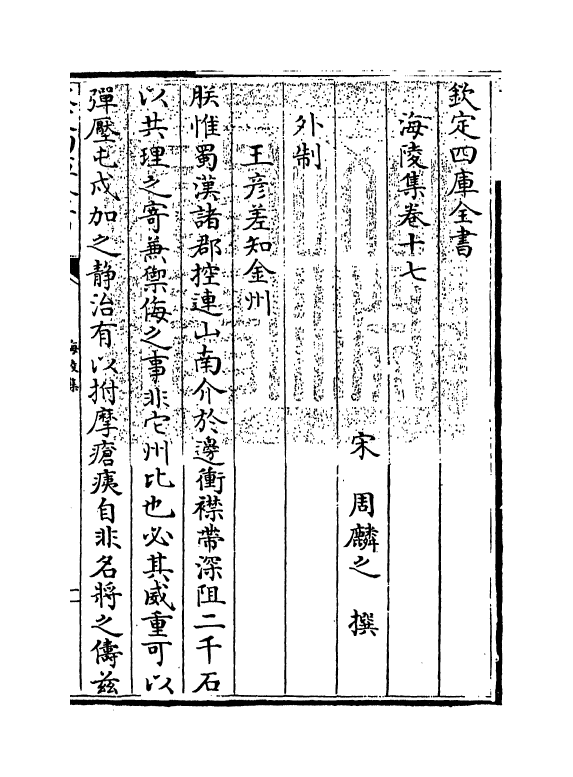 欽定四庫全書
海陵集卷十七
宋　周麟之　撰
外制
王彦差知金州
朕惟蜀漢諸郡控連山南介於邊衝襟帶深阻二千石
以共理之寄兼禦侮之事非它州比也必其威重可以
彈壓屯戍加之静治有以拊摩瘡痍自非名將之儔兹